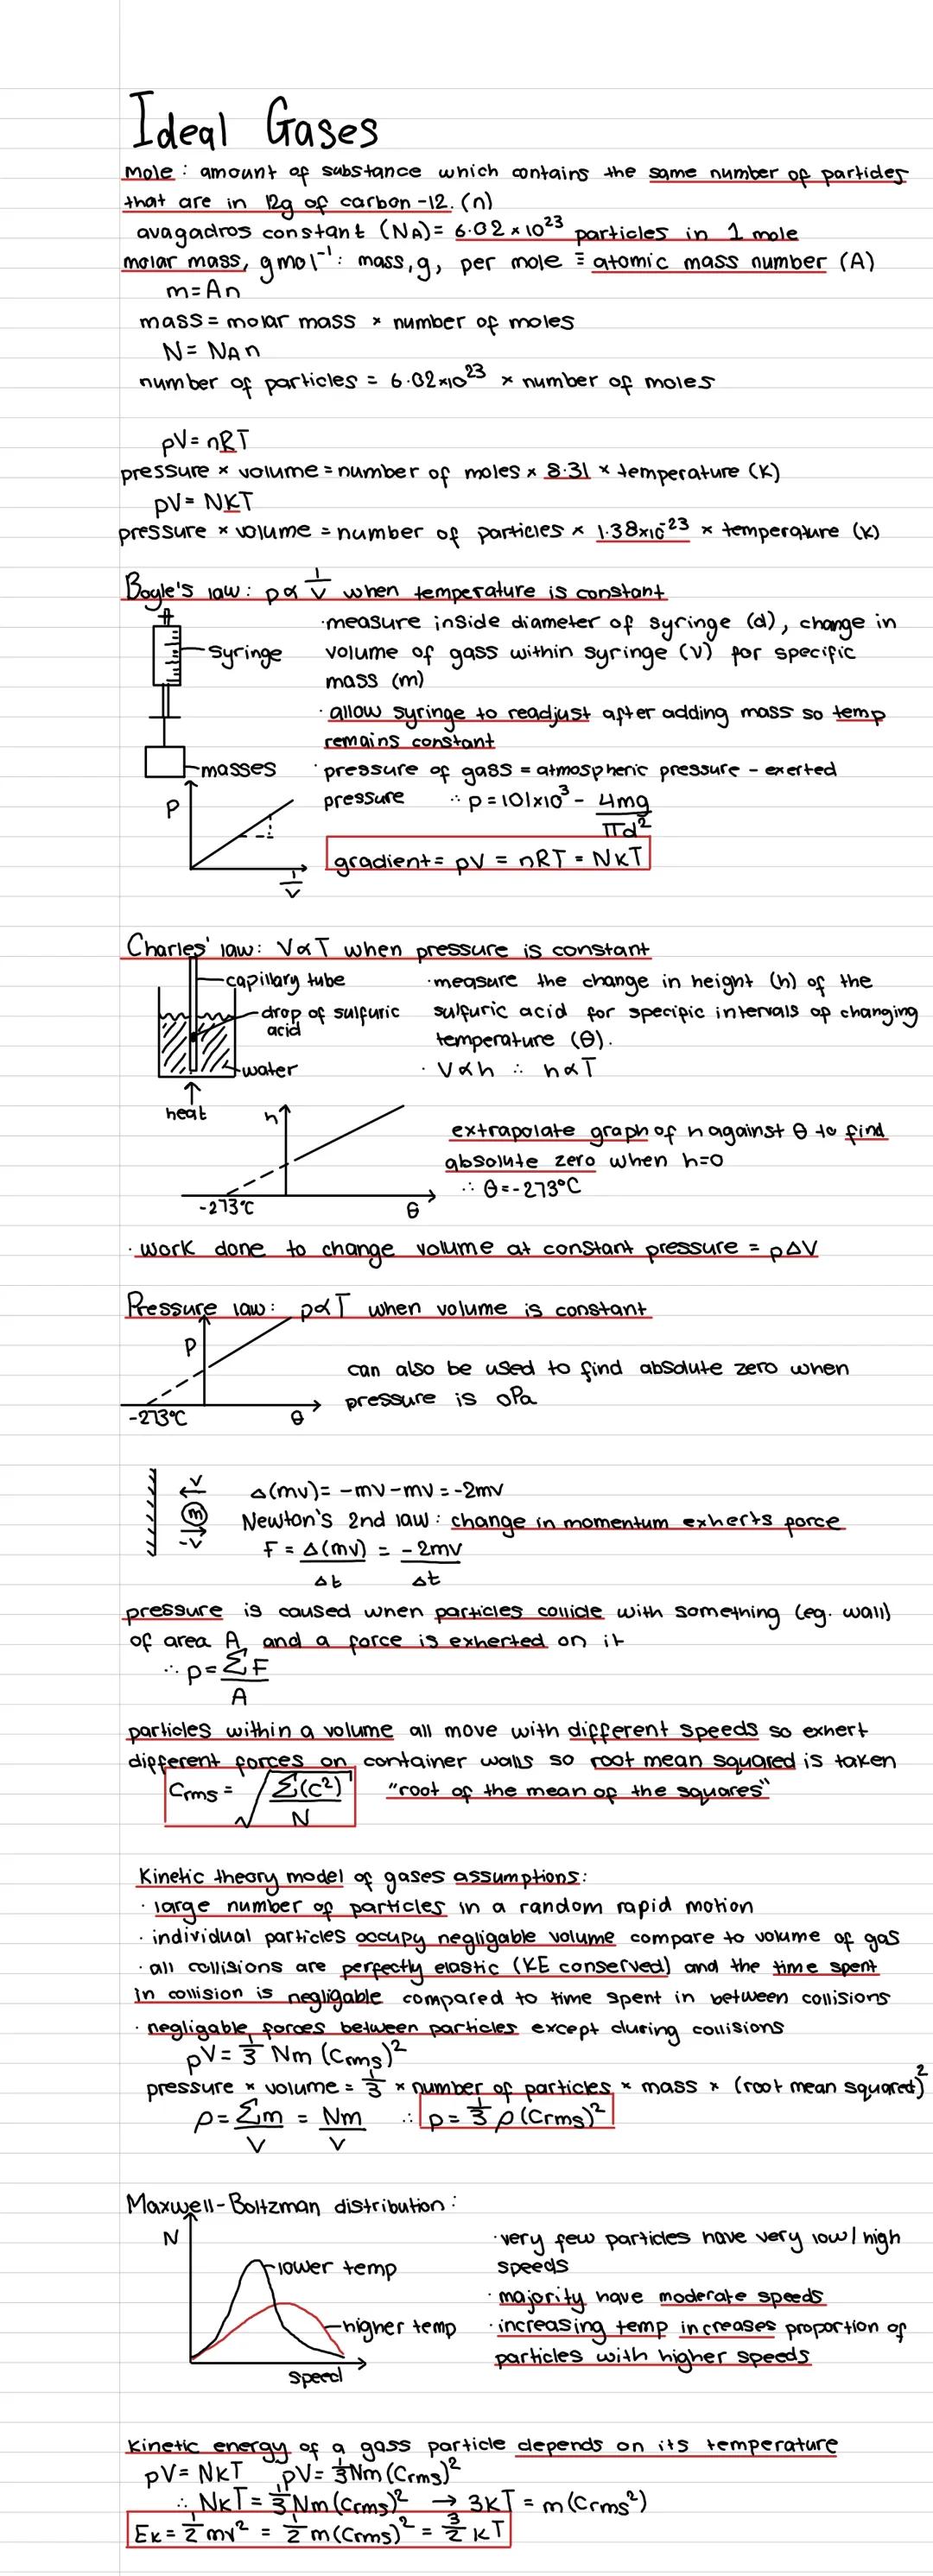 Ideal Gases
mole : amount of substance which contains the same number of particles
that are in 12g of carbon-12. (n)
avagadros constant (NA) = 6.02 × 10²³ particles in 1 mole
molar mass, gmol⁻¹ : mass, g, per mole ≡ atomic mass number (A)
m = An
mass = molar mass × number of moles
N = NAn
number of particles = 6.02×10²³ × number of moles
pV = nRT
pressure × volume = number of moles × 8.31 × temperature (K)
pV = NKT
pressure × volume = number of particles × 1.38×10⁻²³ × temperature (K)
Boyle's law : p ∝ 1/V when temperature is constant
syringe
masses
P
1/V
· measure inside diameter of syringe (d), change in
volume of gass within syringe (V) for specific
mass (m)
· allow syringe to readjust after adding mass so temp
remains constant
· pressure of gass = atmospheric pressure - exerted
pressure ∴ p = 101×10³ - 4mg/πd²
gradient = pV = nRT = NKT
Charles' law : V∝T when pressure is constant
capillary tube
drop of sulfuric
acid
water
heat
· measure the change in height (h) of the
sulfuric acid for specific intervals of changing
temperature (θ).
· V∝h ∴ h∝T
h
-273°C
θ
extrapolate graph of h against θ to find
absolute zero when h=0
∴ θ = -273°C
· work done to change volume at constant pressure = pΔV
Pressure law : p∝T when volume is constant
P
-273°C
θ
can also be used to find absolute zero when
pressure is 0Pa
V
m
-V
Δ(mv) = -mv - mv = -2mv
Newton's 2nd law : change in momentum exherts force
F = Δ(mv)/Δt = -2mv/Δt
pressure is caused when particles collide with something (eg. wall)
of area A and a force is exherted on it
∴ p = ΣF/A
particles within a volume all move with different speeds so exhert
different forces on container walls so root mean squared is taken
Crms = √(Σ(c²)/N) "root of the mean of the squares"
Kinetic theory model of gases assumptions:
· large number of particles in a random rapid motion
· individual particles occupy negligable volume compare to volume of gas
· all collisions are perfectly elastic (KE conserved) and the time spent
in collision is negligable compared to time spent in between collisions
· negligable forces between particles except during collisions
pV = 1/3 Nm (Crms)²
pressure × volume = 1/3 × number of particles × mass × (root mean squared)²
ρ = Σm/V = Nm/V ∴ p = 1/3 ρ (Crms)²
Maxwell-Boltzman distribution :
N
lower temp
higher temp
speed
· very few particles have very low/high
speeds
· majority have moderate speeds
· increasing temp increases proportion of
particles with higher speeds
kinetic energy of a gass particle depends on its temperature
pV = NKT pV = 1/3 Nm (Crms)²
∴ NKT = 1/3 Nm (Crms)² → 3KT = m(Crms²)
Ek = 1/2 mv² = 1/2 m(Crms)² = 3/2 KT